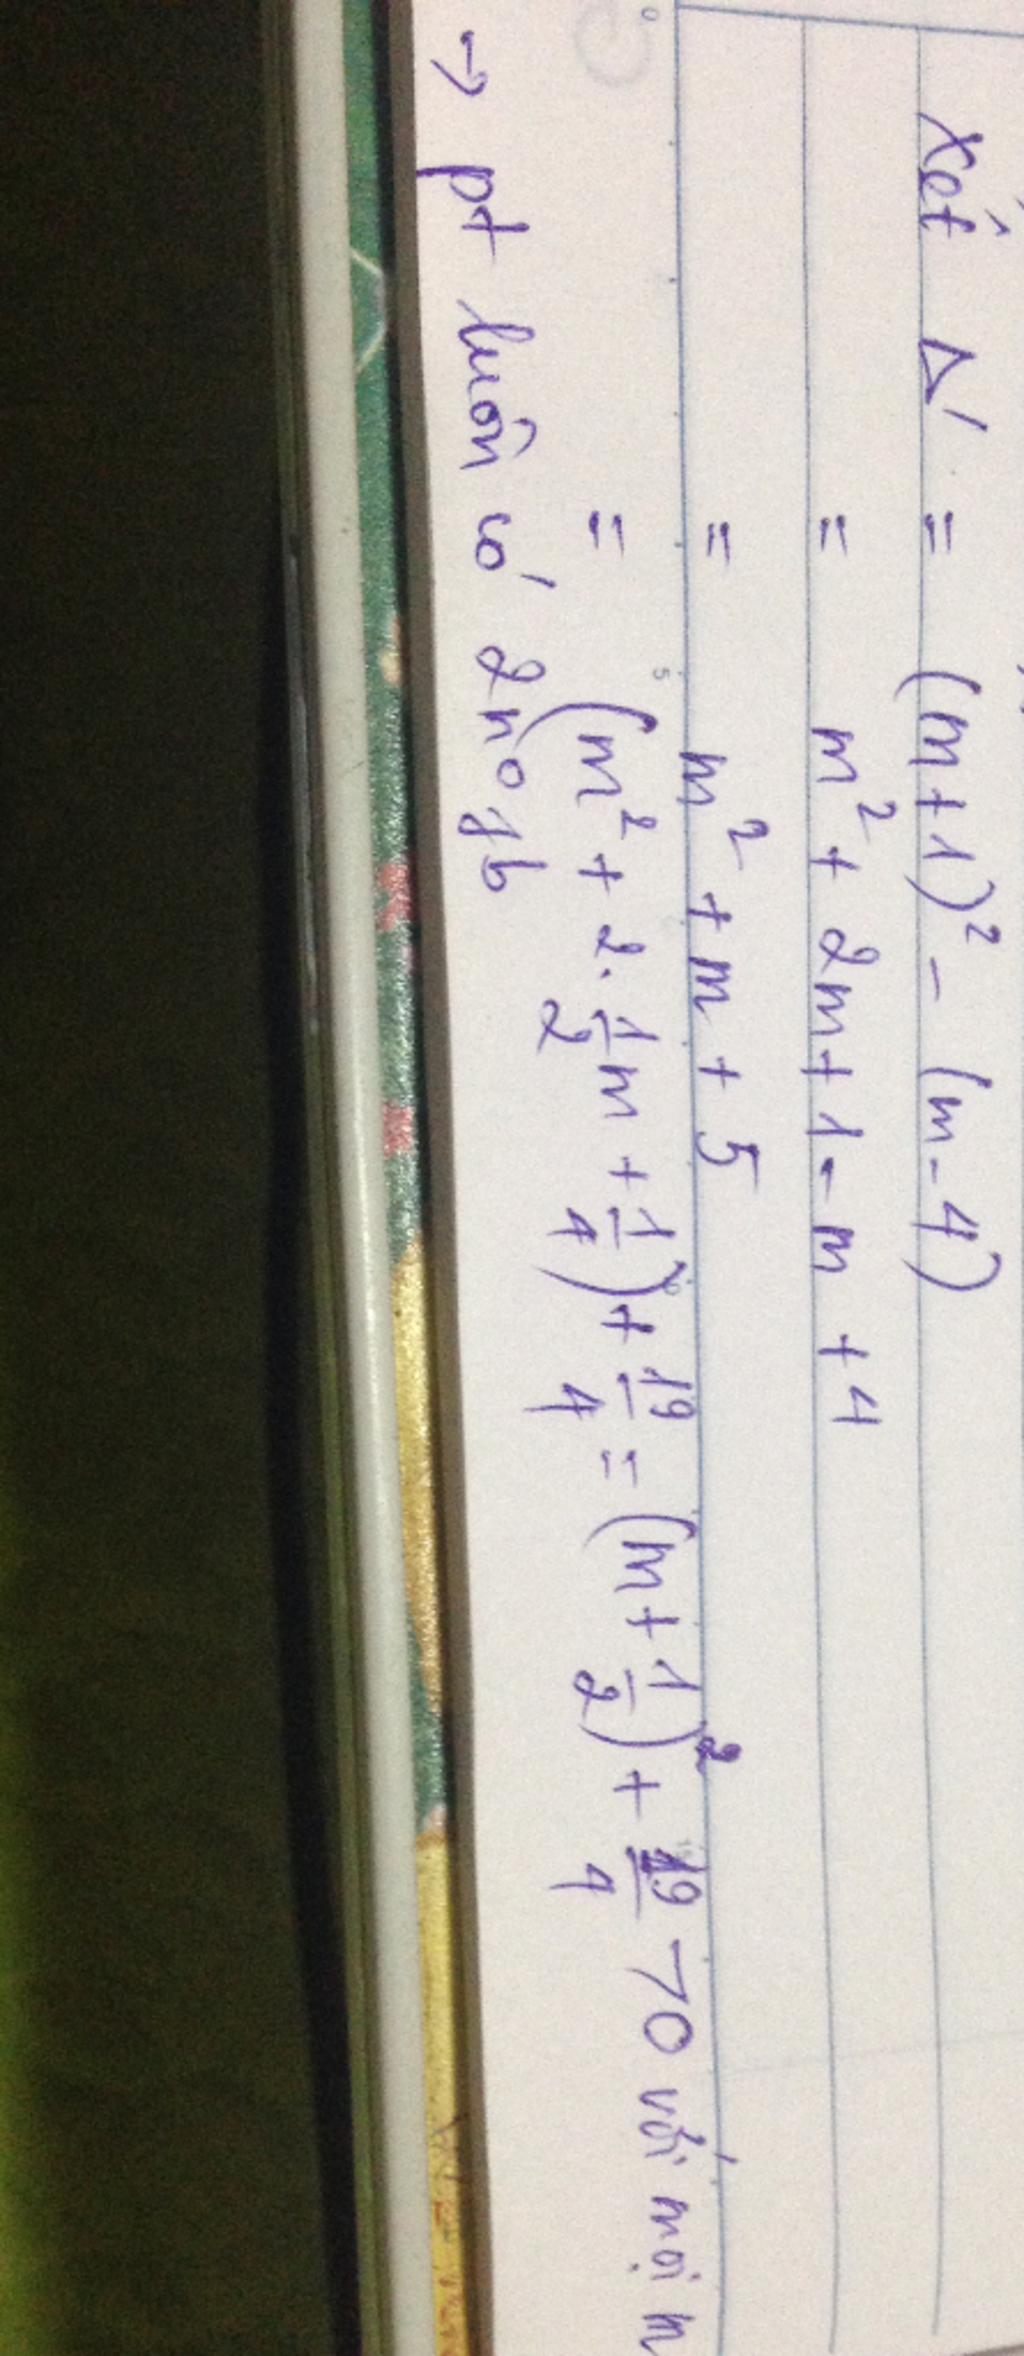 Xét Δ' = (m+1)² - (m-4)
= m² + 2m + 1 - m + 4
= m² + m + 5
= (m² + 2.1/2m + 1/4) + 19/4 = (m + 1/2)² + 19/4 >0 với mọi m
→ pt luôn có 2 no pb